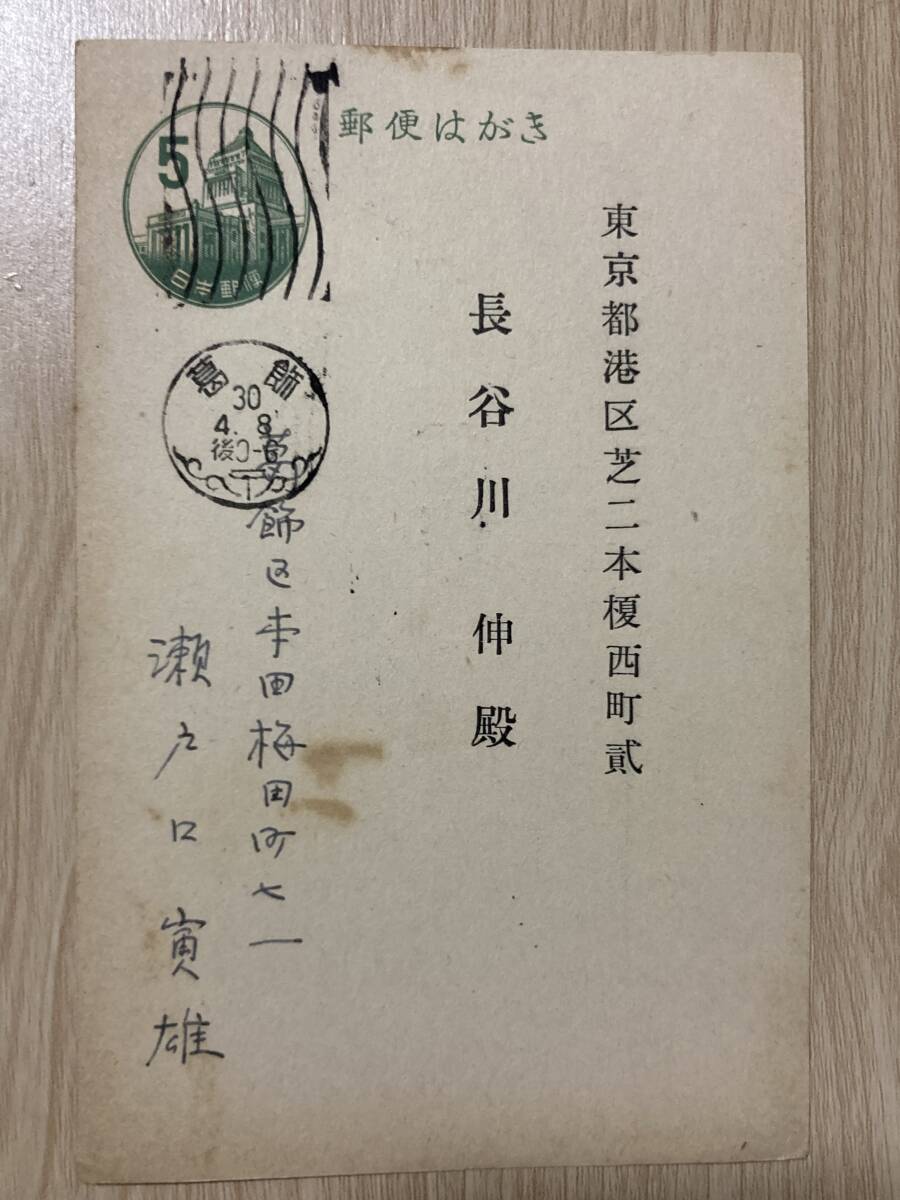 郵便はがき
5
日本郵便
東京都港区芝二本榎西町貳
長谷川伸殿
葛飾
30
4.8
後0-6
葛飾区本田梅田町七一
瀬戸口寅雄